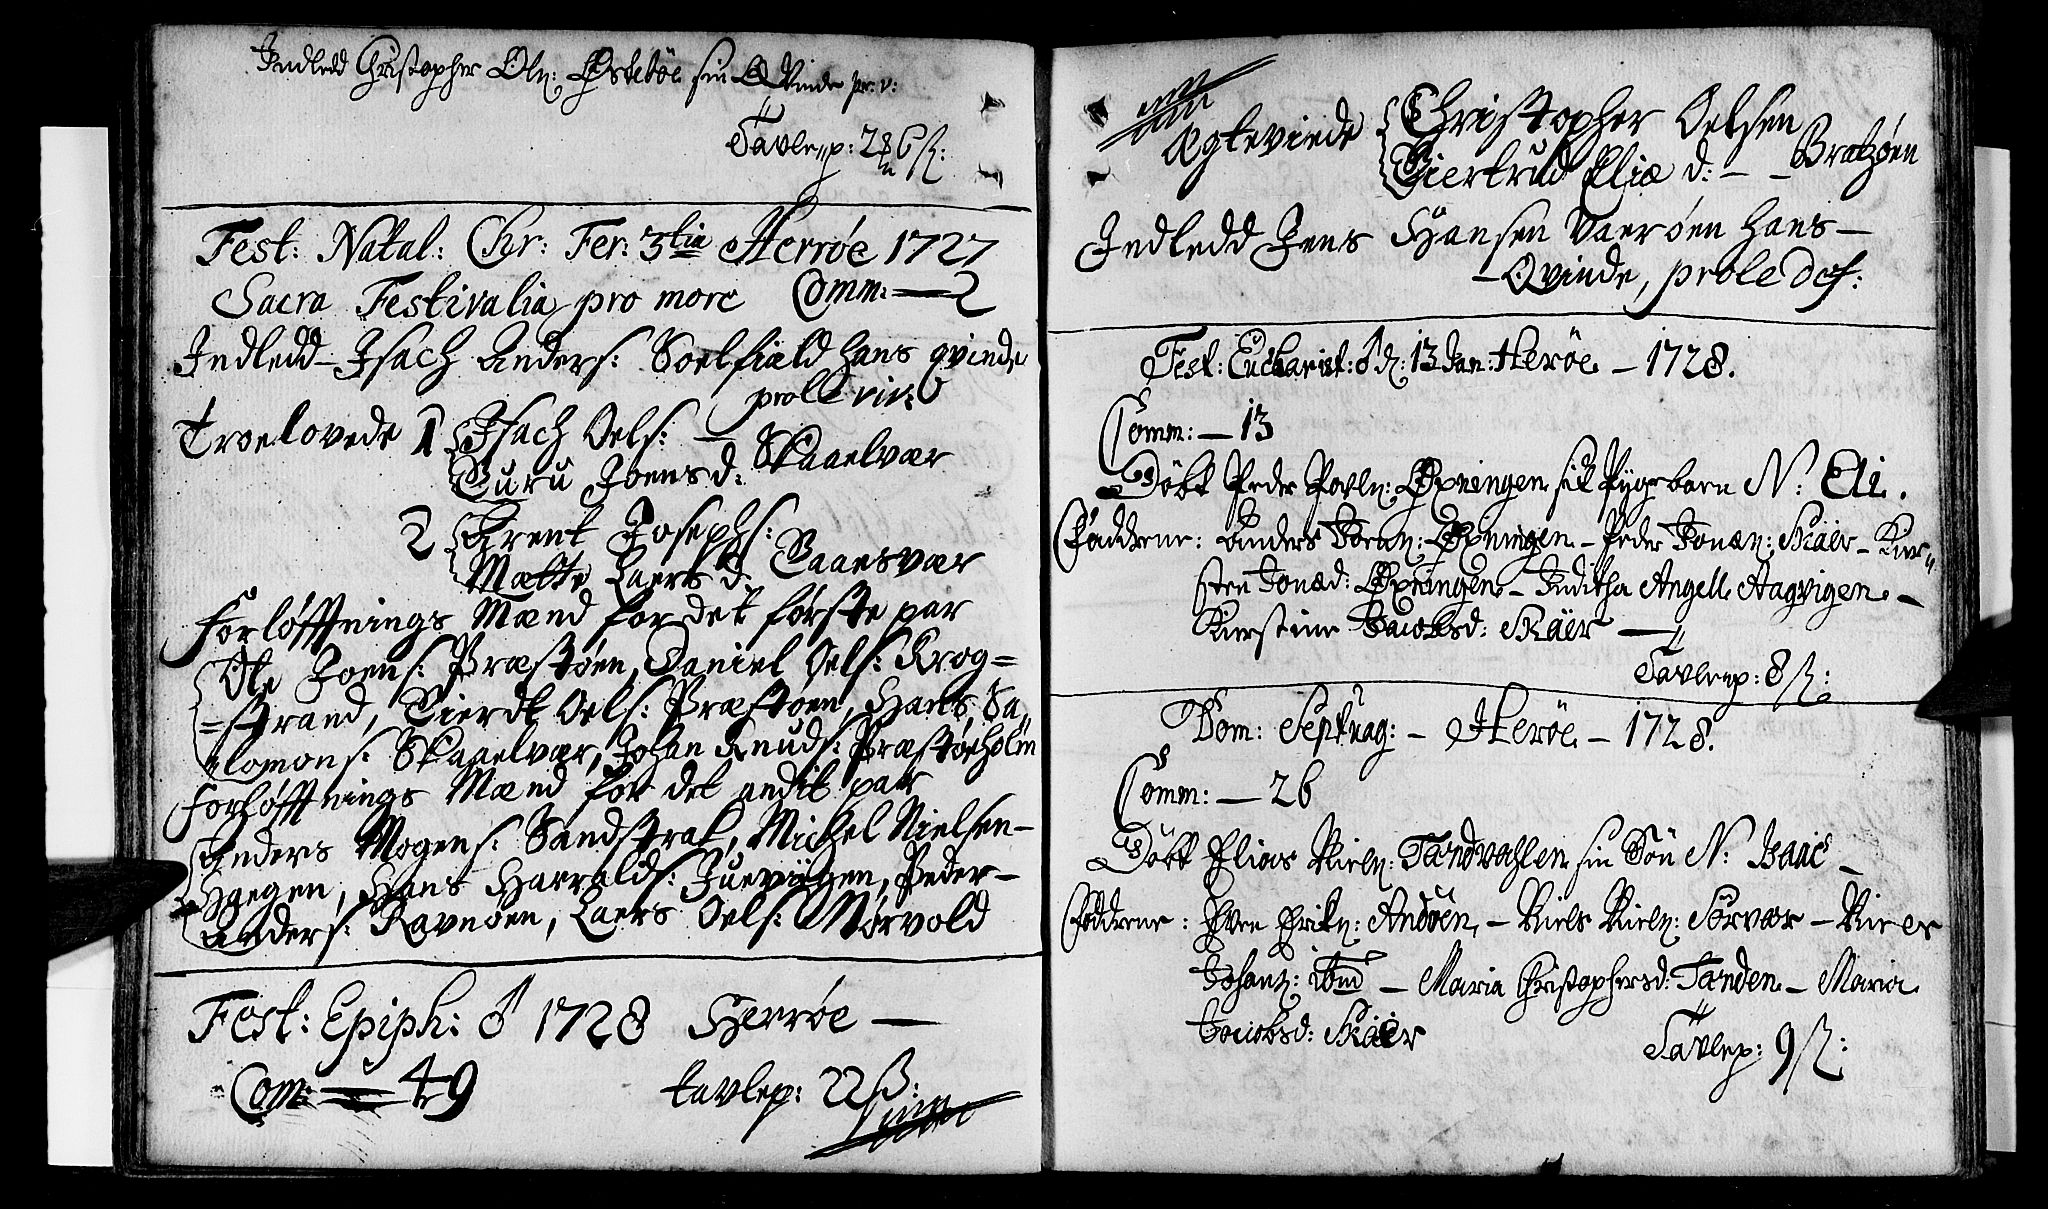 Indledd Christopher Ols: Østebøe sin Qvinde pr: v:
Tavlep: 2 6 ß:
Fest: Natal: Chr: Fer: 3tia Herrøe 1727
Sacra Festivalia pro more Comm: — 2
Indledd Isach Anders: Soelfiæld hans qvinde
prole viv:
Troelovede 1 Isach Oels: — Skaaelvær
Guru Joensd:
2 Arent Josephs: Gaasvær
Mætte Laersd:
Forløfftnings Mænd for det første par
Ole Joens: Præstøen, Daniel Oels: Krog=
=strand, Gierdt Oels: Præstøen, Hans Sa„
„lomons: Skaaelvær, Johan Knuds: Præstøeholm
Forløfftnings Mænd for det andet par
Anders Mogens: Sandstrak, Michel Nielsen –
Hegen, Hans Harralds: Juevigen, Peder –
Anders: Ravnøen, Laers Oels: Mørvold
Fest: Epiph: ♂ 1728 Herrøe —
Com: — 49 tavlep: 22 ß:
Ægteviede Christopher Oelsen
Giertrud Eliæ d: — Bratzøen
Indledd Jens Hansen Værøen hans –
– Qvinde, prole def:
Fest: Eucharist: ♂ d: 13 Jan: Herøe – 1728.
Comm: — 13
Døbt Peder Povls: Øxningen sit Pigebarn N: Eli.
Faddrene: Anders Øxningen – Peder Jonæs: Skaer – Kir„
sten Jonæd: Øxningen – Juditha Angell Aagvigen –
Kirstine Jacobsd: Skäer —
Tavlep: 8 ß:
Dom: Septuag: – Herøe – 1728.
Comm: — 26
Døbt Elias Niels: Tandvahlen sin Søn N: Isaac –
Faddrene: Even Eriks: Andøen – Niels Niels: Sørvær – Niels
Johans: ibid – Maria Christophersd: Tanden – Maria
Jacobsd: Skäer Tavlep: 9 ß: